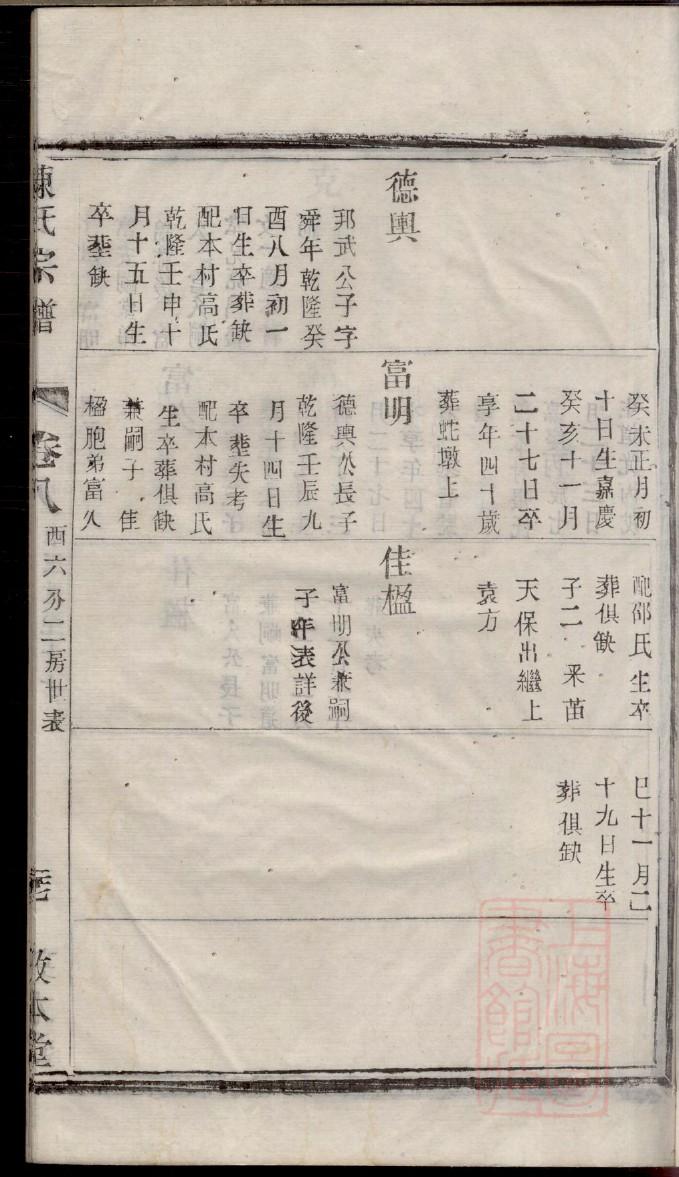 德輿
邦武公子字
舜年乾隆癸
酉八月初一
日生卒葬缺
配本村高氏
乾隆壬申十
月十五日生
卒塟缺
癸未正月初
十日生嘉慶
癸亥十一月
二十七日卒
享年四十歲
葬蛇墩上
富明
德輿公長子
乾隆壬辰九
月十四日生
卒塟失考
配本村高氏
生卒葬俱缺
兼嗣子 佳
楹胞弟富久
配邵氏生卒
葬俱缺
子二 釆苗
天保出繼上
袁方
佳楹
富明公兼嗣
子年表詳後
巳十一月二
十九日生卒
葬俱缺
陳氏宗譜
卷八
西六分二房世表
敦本堂
上海圖書館藏